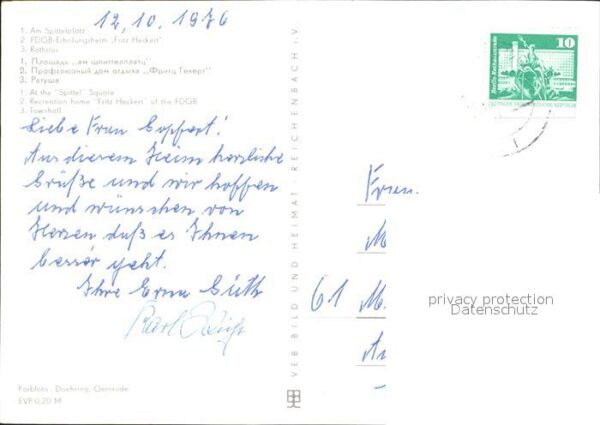 12.10.1976
1. Am Spittelplatz
2. FDGB-Erholungsheim „Fritz Heckert"
3. Rathaus
1. Площадь „ам шпиттеллатц"
2. Профсоюзный дом отдыха „Фритц Гекерт"
3. Ратуша
1. At the "Spittel" Square
2. Recreation home "Fritz Heckert" of the FDGB
3. Townhall
Liebe Frau
Aus diesem Heim herzliche
Grüße und wir hoffen
und wünschen von
Herzen daß es Ihnen
besser geht.
Ihre Erna Güth
Karl
Farbfoto: Doehring, Gernrode
EVP 0,20 M
VEB BILD UND HEIMAT REICHENBACH i. V.
10
Berlin, Rathausstraße
Frau
M
61 M
privacy protection
Datenschutz